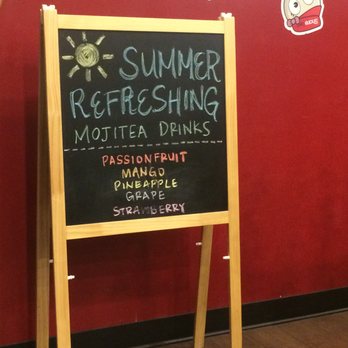 SUMMER
REFRESHING
MOJITEA DRINKS
PASSIONFRUIT
MANGO
PINEAPPLE
GRAPE
STRAWBERRY